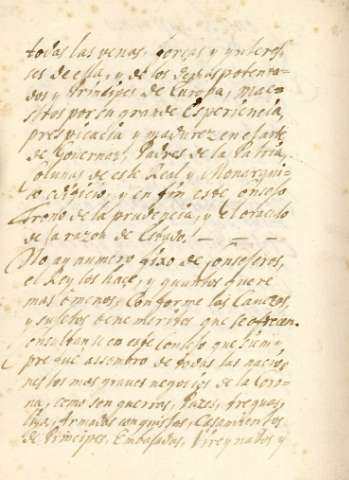 todas las venas, forças y ynteres-
ses de ella, y de los demas potenta-
dos y Principes de Europa, maes-
tros por su grande Esperiencia,
prespicacia y madurez en el arte
de Gouernar, Padres de la Patria,
Colunas de este Real y Monarqui-
co edificio, y en fin este consejo
trono de la prudencia, y el oraculo
de la razon de Estado.
No ay numero fixo de Consejeros,
el Rey los haçe, y quantos quiere
mas ò menos, Conforme las Causas,
y sujetos benemeritos que se ofrecen.
Consultanse en este Consejo que siem-
pre fue assombro de todas las nacio-
nes los mas graues negocios de la Coro-
na, como son guerras, Pazes, treguas,
liga, Armadas conquistas, Casamientos
de Principes, Embaxadas, Virreynados y